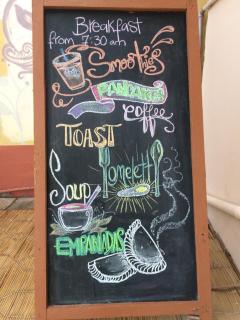 Breakfast
from 7:30 am
Smoothies
PANCAKES
coffee
TOAST
omelett
SOUP
EMPANADAS